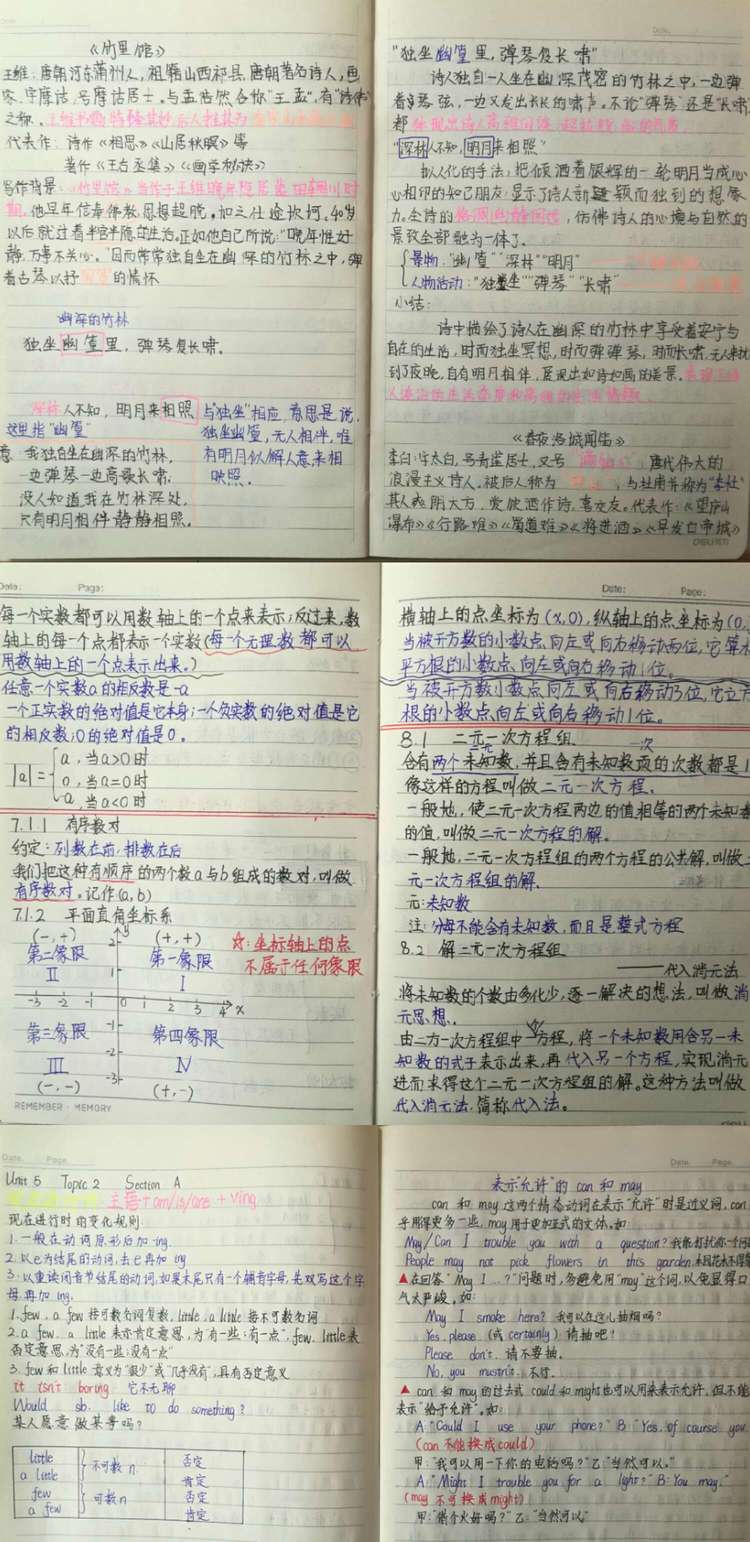 《竹里馆》
王维：唐朝河东蒲州人，祖籍山西祁县，唐朝著名诗人，画
家，字摩诘，号摩诘居士。与孟浩然合称"王孟"，有"诗佛"
之称。
代表作：诗作《相思》《山居秋暝》等
著作《王右丞集》《画学秘诀》
写作背景：《竹里馆》当作于王维晚年隐居蓝田辋川时
期。他早年信奉佛教，思想超脱。加之仕途坎坷，40岁
以后就过着半官半隐的生活。正如他自己所说："晚年惟好
静，万事不关心。"因而常常独自坐在幽深的竹林之中，弹
着古琴以抒的情怀
幽深的竹林
独坐幽篁里，弹琴复长啸。
深林人不知，明月来相照
这里指"幽篁"
意：我独自坐在幽深的竹林，
一边弹琴一边高歌长啸，
没人知道我在竹林深处，
只有明月相伴静静相照。
与"独坐"相应，意思是说，
独坐幽篁，无人相伴，唯
有明月似解人意来相
映照。
"独坐幽篁里，弹琴复长啸"
诗人独自一人坐在幽深茂密的竹林之中，一边弹
着琴弦，一边又发出长长的啸声。不论"弹琴"还是"长啸"
都体现出诗人高雅闲淡、超拔脱俗的气质
"深林人不知，明月来相照"
拟人化的手法，把倾洒着银辉的一轮明月当成心
心相印的知己朋友，显示了诗人新颖而独到的想象
力。全诗的格调幽静闲远，仿佛诗人的心境与自然的
景致全部融为一体了。
景物："幽篁""深林""明月"
人物活动："独坐""弹琴""长啸"
小结：
诗中描绘了诗人在幽深的竹林中享受着安宁与
自在的生活，时而独坐冥想，时而弹弹琴，时而长啸，无人来扰
到了夜晚，自有明月相伴，展现出如诗如画的美景。表现了诗
人淡泊的生活态度和高雅的生活情趣
《春夜洛城闻笛》
李白：字太白，号青莲居士，又号"谪仙人"，唐代伟大的
浪漫主义诗人。被后人称为，与杜甫并称为"李杜"
其人爽朗大方，爱饮酒作诗，喜交友。代表作：《望庐山
瀑布》《行路难》《蜀道难》《将进酒》《早发白帝城》
Date: Page:
每一个实数都可以用数轴上的一个点来表示；反过来，数
轴上的每一个点都表示一个实数（每一个无理数都可以
用数轴上的一个点表示出来。）
任意一个实数a的相反数是-a
一个正实数的绝对值是它本身；一个负实数的绝对值是它
的相反数；0的绝对值是0。
|a|= a，当a>0时
0，当a=0时
-a，当a<0时
7.1.1 有序数对
约定：列数在前，排数在后
我们把这种有顺序的两个数a与b组成的数对，叫做
有序数对。记作(a,b)
7.1.2 平面直角坐标系
(-,+) 2 y (+,+)
第二象限 第一象限
II 1 I
-3 -2 -1 0 1 2 3 4 x
第三象限 -1 第四象限
III -2 IV
(-,-) -3 (+,-)
☆：坐标轴上的点
不属于任何象限
REMEMBER · MEMORY
Date: Page:
横轴上的点坐标为(x,0)，纵轴上的点坐标为(0,
当被开方数的小数点向左或向右移动两位，它算术
平方根的小数点向左或向右移动1位。
当被开方数小数点向左或向右移动3位，它立方
根的小数点向左或向右移动1位。
8.1 二元一次方程组
二元 一次
含有两个未知数，并且含有未知数项的次数都是1
像这样的方程叫做二元一次方程。
一般地，使二元一次方程两边的值相等的两个未知数
的值，叫做二元一次方程的解。
一般地，二元一次方程组的两个方程的公共解，叫做二
元一次方程组的解。
元：未知数
注：分母不能含有未知数，而且是整式方程
8.2 解二元一次方程组
——代入消元法
将未知数的个数由多化少，逐一解决的想法，叫做消
元思想。
由二元一次方程组中一方程，将一个未知数用含另一未
知数的式子表示出来，再代入另一个方程，实现消元
进而求得这个二元一次方程组的解。这种方法叫做
代入消元法，简称代入法。
Date. Page.
Unit 5 Topic 2 Section A
主语+am/is/are+ving
现在进行时的变化规则：
1.一般在动词原形后加-ing.
2.以e为结尾的动词，去e再加ing
3.以重读闭音节结尾的动词，如果末尾只有一个辅音字母，先双写这个字
母，再加ing.
1.few, a few接可数名词复数，little, a little接不可数名词
2.a few, a little表示肯定意思，为"有一些；有一点"，few, little表
否定意思，为"没有一些；没有一点"
3.few和little意义为"很少"或"几乎没有"，具有否定意义
It isn't boring 它不无聊
Would sb. like to do something?
某人愿意做某事吗？
little 不可数n 否定
a little 肯定
few 可数n 否定
a few 肯定
Date. Page.
表示"允许"的can和may
can和may这两个情态动词在表示"允许"时是近义词，can
乎用得更多一些，may用于更加正式的文体。如：
May/Can I trouble you with a question? 我能打扰你一个问
People may not pick flowers in this garden.
▲在回答"May I …?"问题时，多避免用"may"这个词，以免显得口
气太严峻。如：
May I smoke here? 我可以在这儿抽烟吗？
Yes, please.（或certainly）请抽吧！
Please don't. 请不要抽。
No, you mustn't. 不行.
▲can和may的过去式could和might也可以用来表示允许，但不能
表示"给予允许"。如：
A:"Could I use your phone?" B:"Yes, of course you
(can不能换成could)
甲："我可以用一下你的电话吗？"乙："当然可以。"
A:"Might I trouble you for a light?" B:"You may."
(may不可换成might)
甲："借个火好吗？"乙："当然可以"